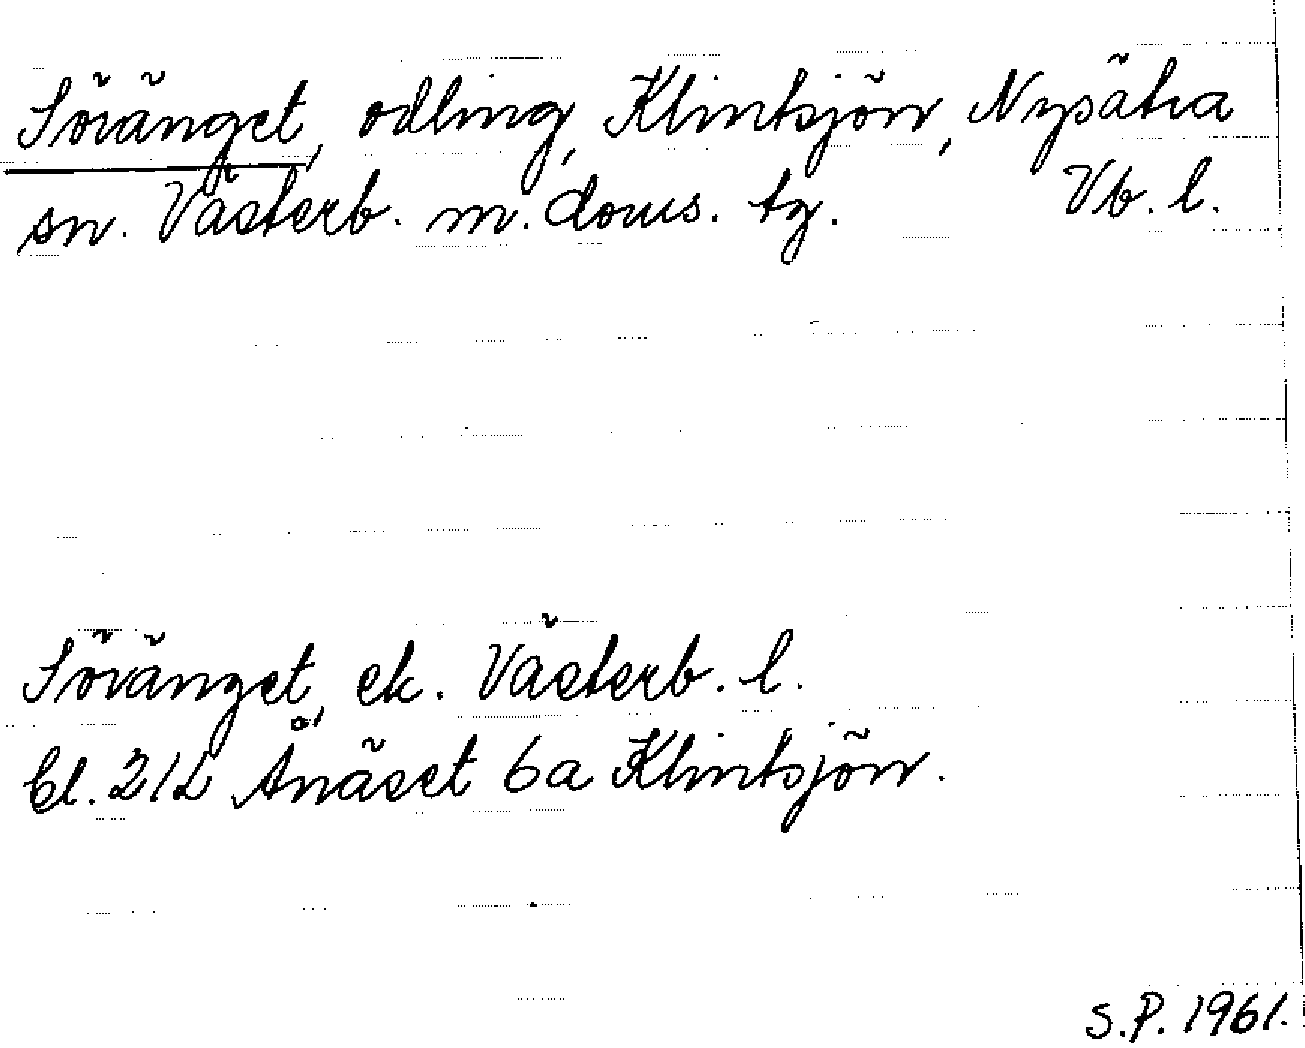 Söränget, odling, Klintsjön, Nysätra
sn. Västerb. m. doms. tg. Vb. l.
Söränget, ek. Västerb. l.
bl. 212 Ånäset 6a Klintsjön.
S.P. 1961.